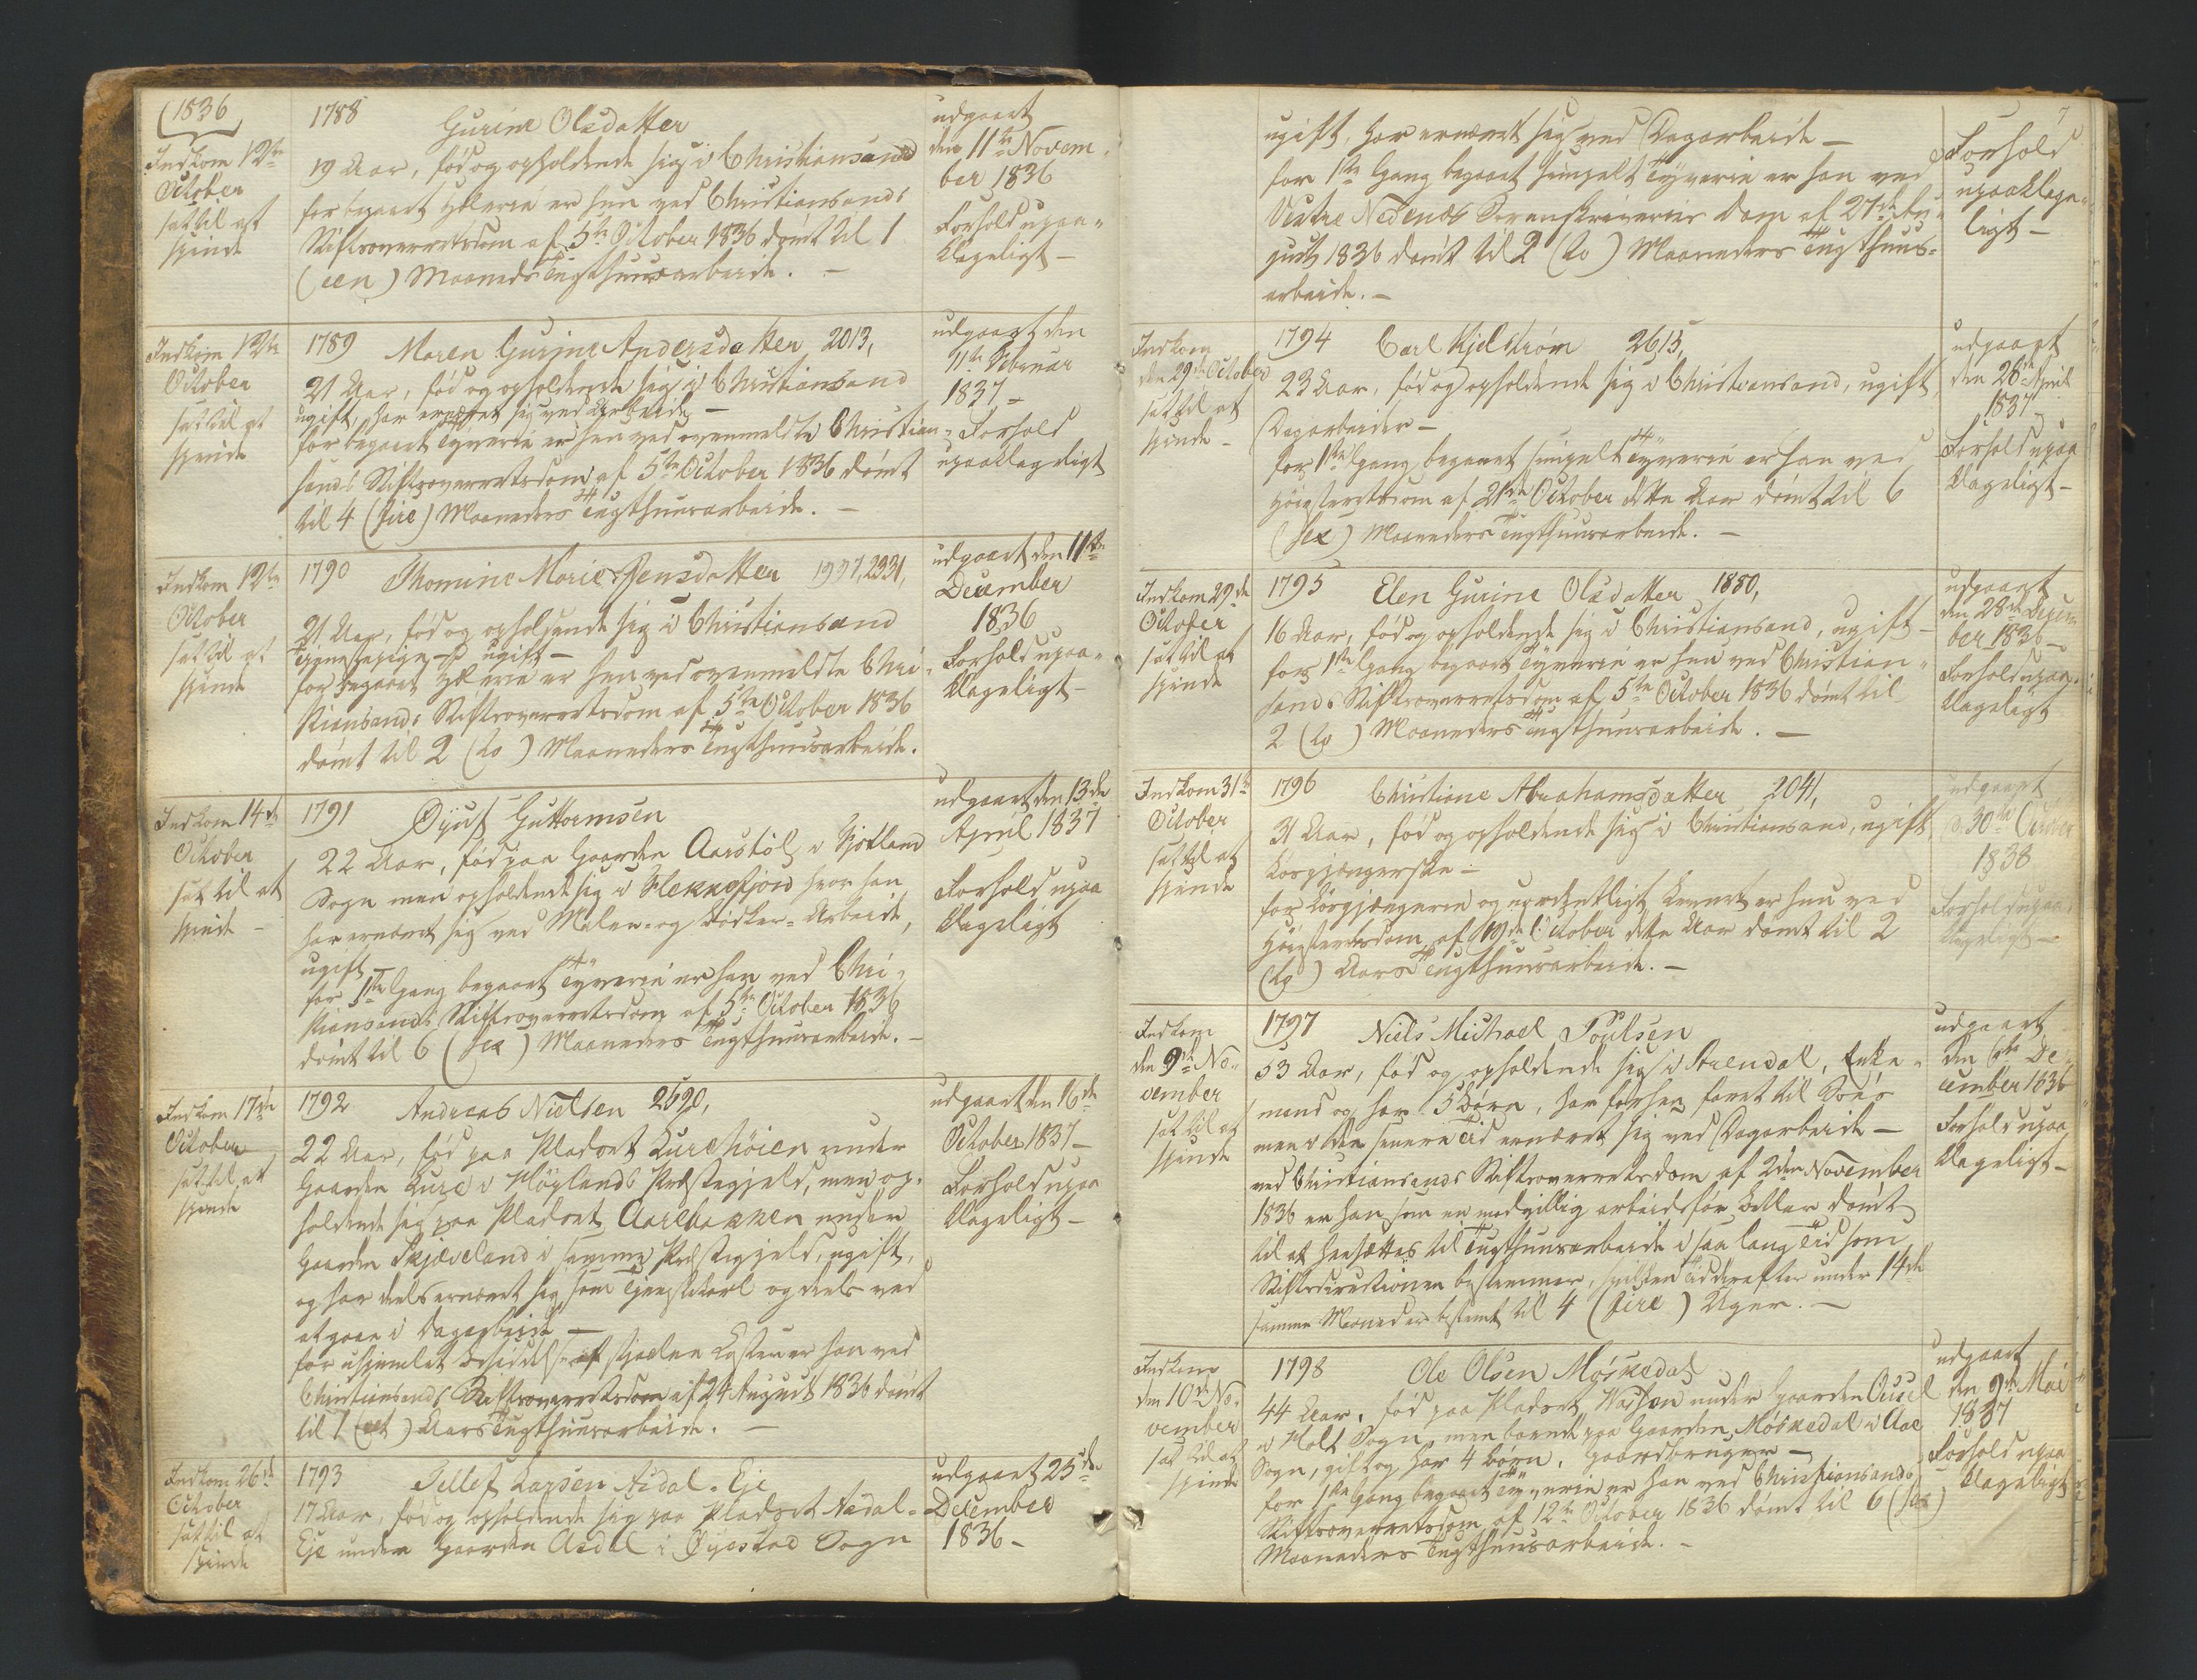 1836
Indkom 12te
October
sat til at
spinde
1788 Gurine Olsdatter
19 Aar, fød og opholdende sig i Christiansand
for begaaet Hæleri er hun ved Christiansands
Stiftsoverretsdom af 5te October 1836 dømt til 1
(een) Maaneds Tugthuusarbeide. –
udgaaet
den 11te Novem-
ber 1836
Forhold upaa-
klageligt –
Indkom 12te
October
sat til at
spinde
1789 Maren Gurine Andersdatter 2013,
21 Aar, fød og opholdende sig i Christiansand
ugift, har ernæret sig ved Arbeide –
for begaaet Tyverie er hun ved ovenmeldte Christian-
sands Stiftsoverretsdom af 5te October 1836 dømt
til 4 (fire) Maaneders Tugthuusarbeide. –
udgaaet den
11te Februar
1837 –
Forhold
upaaklageligt
Indkom 12te
October
sat til at
spinde
1790 Thomine Marie Jensdatter 1997, 2331,
21 Aar, fød og opholdende sig i Christiansand
Tjenestepige – ugift –
for begaaet Hæleri er hun ved ovenmeldte Chri-
stiansands Stiftsoverretsdom af 5te October 1836
dømt til 2 (to) Maaneders Tugthuusarbeide.
udgaaet den 11te
December
1836
Forhold upaa-
klageligt –
Indkom 14de
October
sat til at
spinde –
1791 Guttormsen
22 Aar, fød paa Gaarden Aarstöl i
Sogn men opholdende sig i Flekkefjord hvor han
har ernæret sig ved Maler- og Bødker-Arbeide,
ugift –
for 1ste Gang begaaet Tyverie er han ved Chri-
stiansands Stiftsoverretsdom af 5te October 1836
dømt til 6 (sex) Maaneders Tugthuusarbeide. –
udgaaet den 13de
April 1837
Forhold upaa
klageligt
Indkom 17de
October
sat til at
spinde
1792 Andreas Nielsen 2690,
22 Aar, fød paa Pladset Lurehöien under
Gaarden Lure i Höylands Præstegjeld, men op-
holdende sig paa Pladset Aarebakken under
Gaarden Skjæveland i samme Præstegjeld, ugift,
og har deels ernæret sig som Tjenestekarl og deels ved
at gaae i Dagarbeide –
for uhjemlet Besiddelse af stjaalne Koster er han ved
Christiansands Stiftsoverretsdom af 24 August 1836 dømt
til 1 (eet) Aars Tugthuusarbeide. –
udgaaet den 16de
October 1837 –
Forhold upaa
klageligt –
Indkom 26de
October
sat til at
spinde
1793 Tellef Larsen Asdal-Eje
17 Aar, fød og opholdende sig paa Pladset Asdal-
Eje under Gaarden Asdal i Öyestad Sogn
udgaaet 25de
December
1836 –
7
ugift, har ernæret sig ved Dagarbeide –
for 1ste Gang begaaet simpelt Tyverie er han ved
Vestre Nedenæs Sorenskriveries Dom af 27de Au-
gust 1836 dømt til 2 (to) Maaneders Tugthuus-
arbeide. –
Forhold
upaaklage-
ligt –
Indkom
den 29de October
sat til at
spinde –
1794 Carl Kjelström 2615,
23 Aar, fød og opholdende sig i Christiansand, ugift,
Dagarbeider –
for 1ste Gang begaaet simpelt Tyverie er han ved
Høiesteretsdom af 21de October dette Aar dømt til 6
(sex) Maaneders Tugthuusarbeide. –
udgaaet
den 28de April
1837
Forhold upaa
klageligt –
Indkom 29de
October
sat til at
spinde
1795 Elen Gurine Olsdatter 1880,
16 Aar, fød og opholdende sig i Christiansand, ugift –
for 1ste Gang begaaet Tyverie er hun ved Christian-
sands Stiftsoverretsdom af 5te October 1836 dømt til
2 (to) Maaneders Tugthuusarbeide. –
udgaaet
den 28de Decem
ber 1836 –
Forhold upaa-
klageligt
Indkom 31te
October
sat til at
spinde
1796 Christiane Abrahamsdatter 2041,
31 Aar, fød og opholdende sig i Christiansand, ugift,
Løsgjængerske –
for Løsgjængerie og uordentligt Levnet er hun ved
Høiesteretsdom af 19de October dette Aar dømt til 2
(to) Aars Tugthuusarbeide. –
udgaaet
d. 30te October
1838
Forhold upaa-
klageligt –
Indkom
den 9de No-
vember
sat til at
spinde
1797 Niels Michael Poulsen
53 Aar, fød og opholdende sig i Arendal, Enke-
mand og har 5 Børn, har forhen faret til Søes
men i den senere Tid ernæret sig ved Dagarbeide –
ved Christiansands Stiftsoverretsdom af 2den November
1836 er han som en modvillig arbeidsfør Betler dømt
til at hensættes til Tugthuusarbeide i saa lang Tid som
Stiftsdirectionen bestemmer, hvilken Tid derefter under 14de
samme Maaned er bestemt til 4 (fire) Uger. –
udgaaet
den De
cember 1836
Forhold upaa
klageligt –
Indkom
den 10de No-
vember
sat til at
spinde
1798 Ole Olsen Möskedal
44 Aar, fød paa Pladset under Gaarden
i Holt Sogn, men boende paa Gaarden Möskedal i Aae
Sogn, gift og har 4 Børn. Gaardbruger –
for 1ste Gang begaaet Tyverie er han ved Christiansands
Stiftsoverretsdom af 12te October 1836 dømt til 6 (sex)
Maaneders Tugthuusarbeide. –
udgaaet
den 9de Mai
1837
Forhold upaa
klageligt